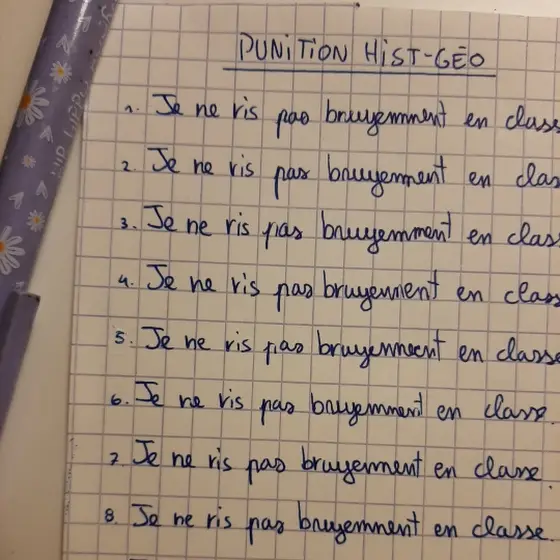 PUNITION HIST-GÉO
1. Je ne ris pas bruyemment en classe
2. Je ne ris pas bruyemment en clas
3. Je ne ris pas bruyemment en clas
4. Je ne ris pas bruyemment en class
5. Je ne ris pas bruyemment en classe
6. Je ne ris pas bruyemment en classe.
7. Je ne ris pas bruyemment en classe.
8. Je ne ris pas bruyemment en classe.